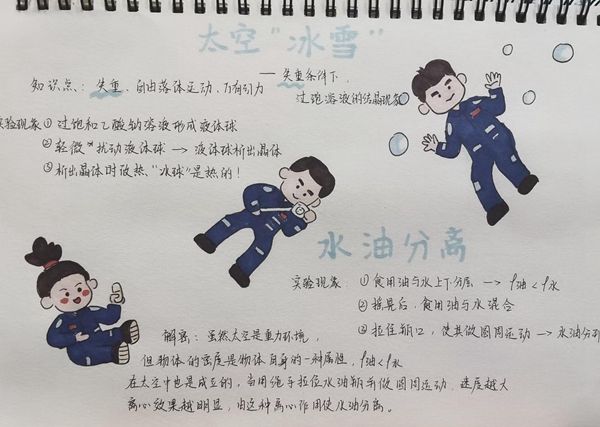 太空“冰雪”
——失重条件下
过饱和溶液的结晶现象
知识点：失重、自由落体运动、万有引力
实验现象①过饱和乙酸钠溶液形成液体球
②轻微*扰动液体球→液体球析出晶体
③析出晶体时放热，“冰球”是热的！
水油分离
实验现象：①食用油与水上下分层→ρ油<ρ水
②摇晃后，食用油与水混合
③拉住瓶口，使其做圆周运动→水油分离
解密：虽然太空是重力环境，
但物体的密度是物体自身的一种属性，ρ油<ρ水
在太空中也是成立的，当用绳子拉住水油瓶子做圆周运动，速度越大
离心效果越明显，由这种离心作用使水油分离。